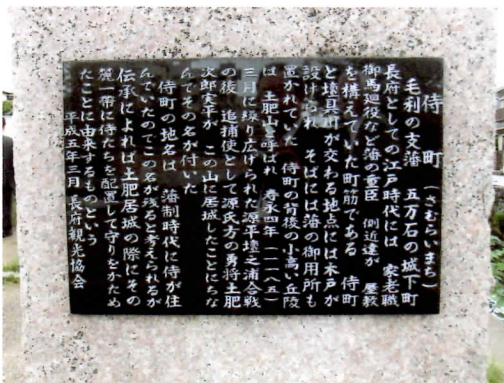 侍町（さむらいまち）
毛利の支藩 五万石の城下町
長府としての江戸時代には 家老職
御馬廻役など藩の重臣 側近達が 屋敷
を構えていた町筋である 侍町
と壇具川が交わる地点には木戸が
設けられ そばには藩の御用所も
置かれていた 侍町の背後の小高い丘陵
は 土肥山と呼ばれ 寿永四年（一一八五）
三月に繰り広げられた源平壇之浦合戦
の後 追捕使として源氏方の勇将土肥
次郎実平が この山に居城したことにちな
んでその名が付いた
侍町の地名は 藩制時代に侍が住
んでいたのでこの名が残ると考えられるが
伝承によれば土肥居城の際にその
麓一帯に侍たちを配置して守りをかため
たことに由来するものという
平成五年三月 長府観光協会